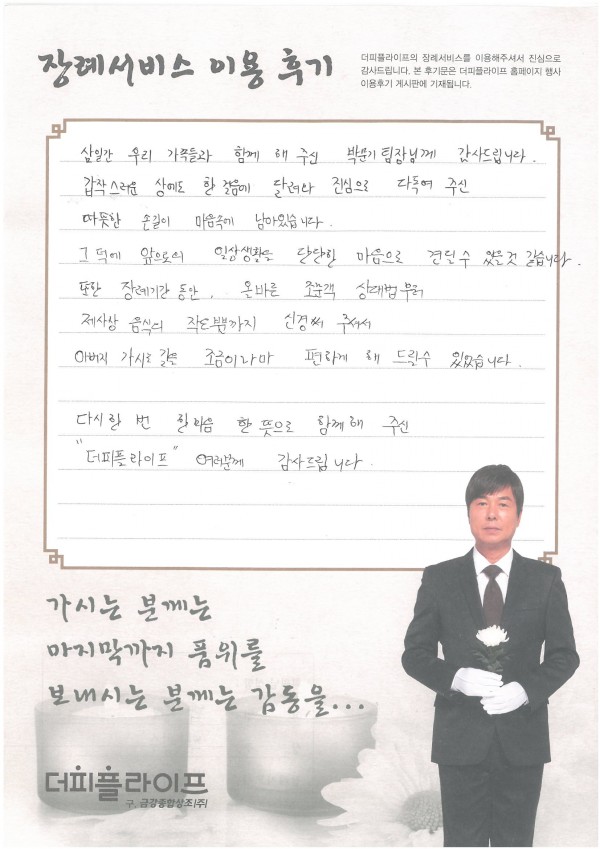 장례서비스 이용 후기
더피플라이프의 장례서비스를 이용해주셔서 진심으로
감사드립니다. 본 후기문은 더피플라이프 홈페이지 행사
이용후기 게시판에 기재됩니다.
삼일간 우리 가족들과 함께 해 주신 박문기 팀장님께 감사드립니다.
갑작스러운 상에도 한 걸음에 달려와 진심으로 다독여 주신
따뜻한 손길이 마음속에 남아있습니다.
그 덕에 앞으로의 일상생활을 단단한 마음으로 견딜수 있을것 같습니다.
또한 장례기간 동안, 올바른 조문객 상대법부터
제사상 음식의 작은부분까지 신경써 주셔서
아버지 가시는 길을 조금이라마 편하게 해 드릴수 있었습니다.
다시한 번 한마음 한 뜻으로 함께해 주신
"더피플라이프" 여러분께 감사드립니다.
가시는 분께는
마지막까지 품위를
보내시는 분께는 감동을...
더피플라이프
구. 금강종합상조(주)